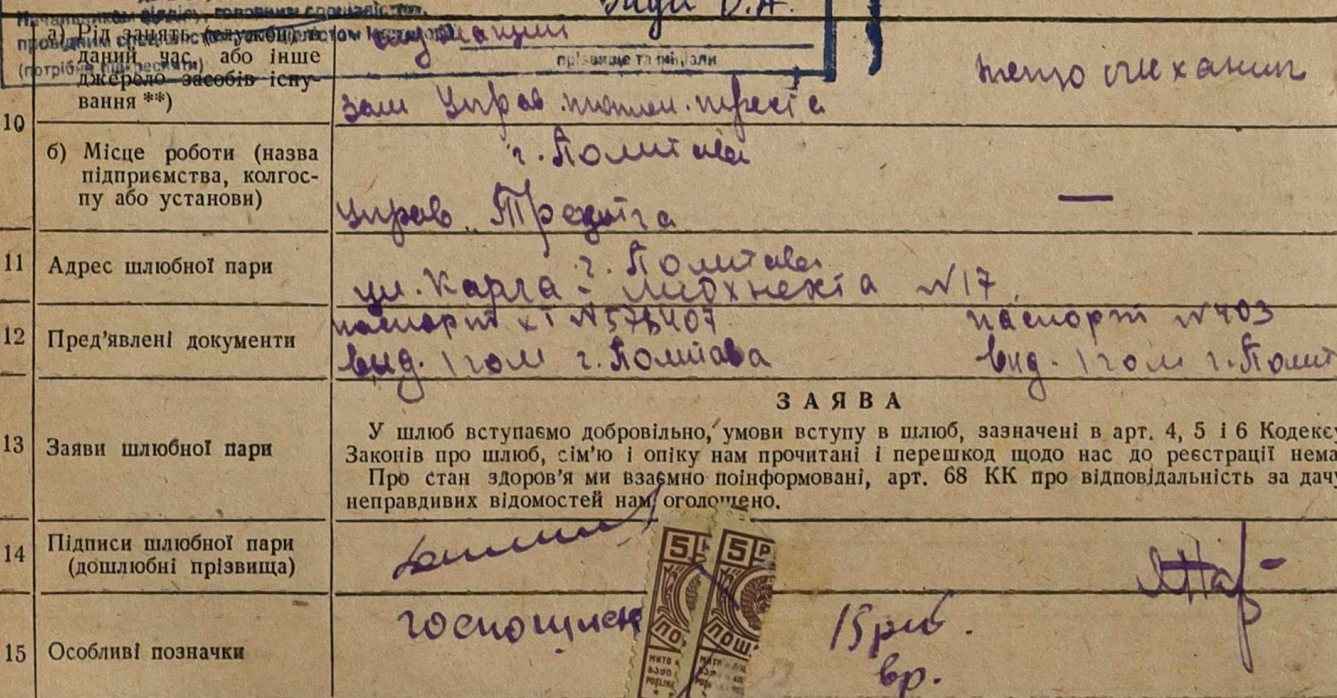 Начальником відділу, головним спеціалістом,
провідним спеціалістом
(потрібне підкреслити)
прізвище та ініціали
10
а) Рід занять (службу) в
даний час, або інше
джерело засобів існу-
вання **)
служащий
зам Управ.
механик
б) Місце роботи (назва
підприємства, колгос-
пу або установи)
г. Полтава
Управ. Треста
—
11
Адрес шлюбної пари
г. Полтава
ул. Карла - Либкнехта №17
12
Пред'явлені документи
паспорт №576407
вид. 1 гом г. Полтава
паспорт №403
вид. 1 гом г. Полт
13
Заяви шлюбної пари
ЗАЯВА
У шлюб вступаємо добровільно, умови вступу в шлюб, зазначені в арт. 4, 5 і 6 Кодексу
Законів про шлюб, сім'ю і опіку нам прочитані і перешкод щодо нас до реєстрації нема
Про стан здоров'я ми взаємно поінформовані, арт. 68 КК про відповідальність за дачу
неправдивих відомостей нам оголошено.
14
Підписи шлюбної пари
(дошлюбні прізвища)
15
Особливі позначки
госпошлин
15 руб.
5 Р
5 Р
ПО
ПОШ